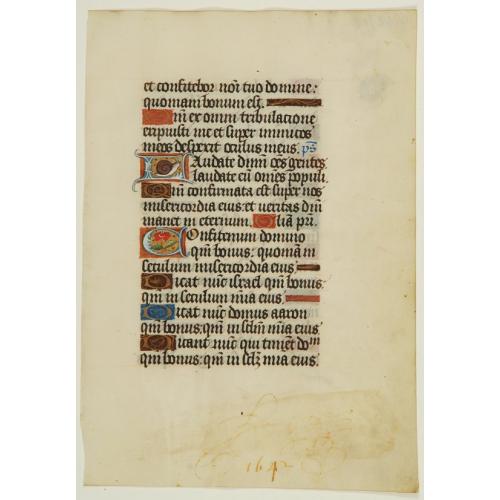 et confitebor noi tuo domine:
quoniam bonum est.
Qm ex omni tribulatione
eripuisti me et super inimicos
meos despexit oculus meus. ps
Laudate dnm oes gentes
laudate eu omnes populi.
Qm confirmata est super nos
misericordia eius: et veritas dni
manet in eternum. Glia pri.
Confitemini domino
qm bonus: quoniam in
seculum misericordia eius.
Dicat nuc israel qm bonus:
qm in seculum mia eius.
Dicat nuc domus aaron
qm bonus: qm in sclm mia eius.
Dicant nuc qui timent dom
qm bonus: qm in sclm mia eius.